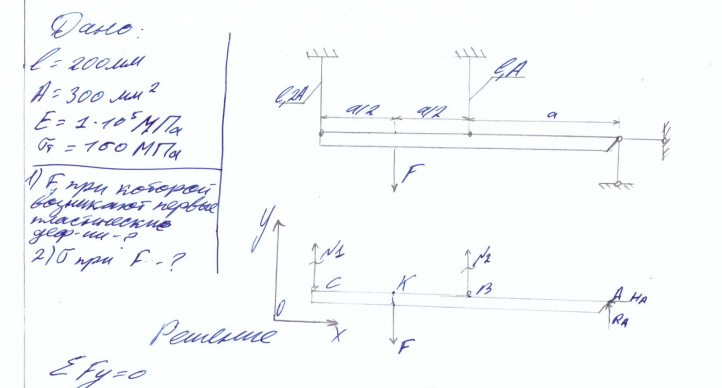 Дано:
l = 200мм
A = 300 мм²
E = 1·10⁵ МПа
σт = 160 МПа
1) F, при которой
возникают первые
пластические
деф-ии - ?
2) σ при F... ?
l, 2A
a/2
a/2
l, A
a
F
y
N1
N2
C
K
B
A
HA
RA
F
O
x
Решение
ΣFy=0